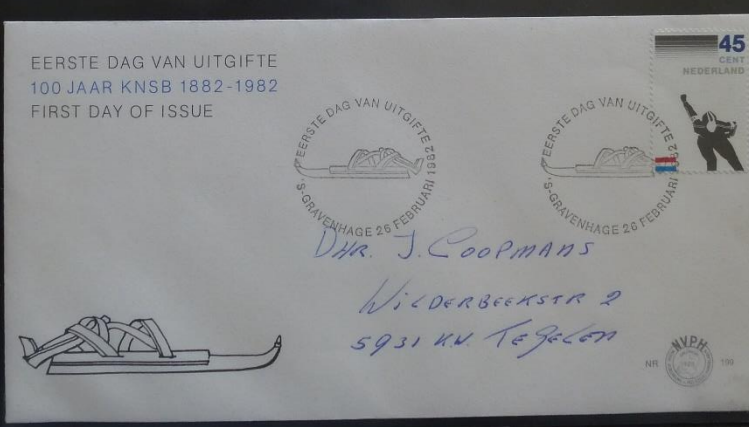 EERSTE DAG VAN UITGIFTE
100 JAAR KNSB 1882-1982
FIRST DAY OF ISSUE
45
CENT
NEDERLAND
EERSTE DAG VAN UITGIFTE
'S-GRAVENHAGE 26 FEBRUARI 1982
EERSTE DAG VAN UITGIFTE
'S-GRAVENHAGE 26 FEBRUARI 1982
DHR. J. COOPMANS
WILDERBEEKSTR 2
5931 K.W. TEGELEN
NVPH
NR 199